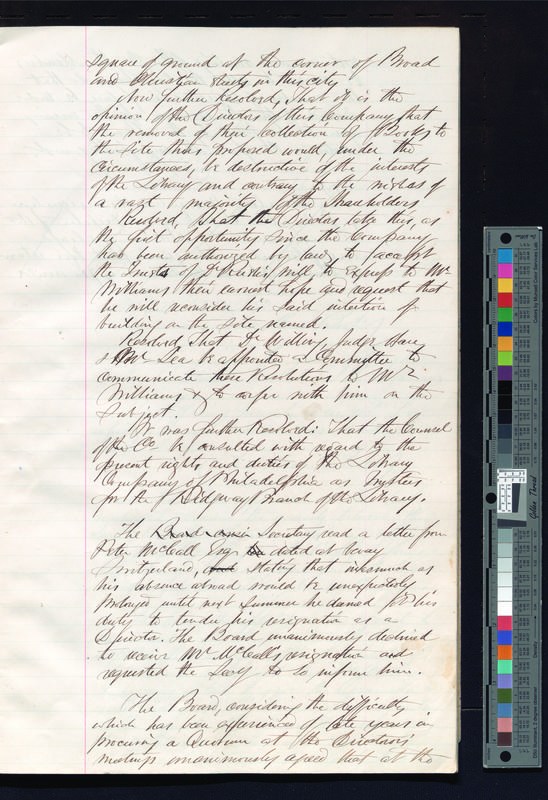 square of ground at the corner of Broad
and Christian streets in this city
Now further Resolved, That it is the
opinion of the Directors of this Company that
the removal of their collection of Books to
the site thus proposed would, under the
circumstances, be destructive of the interests
of the Library and contrary to the wishes of
a vast majority of the Shareholders
Resolved, That the Directors take this, as
the first opportunity since the Company
has been authorized by law to accept
the Trusts of Dr Rush's will, to express to Mr
Williams their earnest hope and request that
he will reconsider his said intention of
building on the site named.
Resolved That Dr Willing, Judge Hare
& Mr Lea be appointed a Committee to
communicate these Resolutions to Mr
Williams & to confer with him on the
subject.
It was further Resolved: That the Counsel
of the Co be consulted with regard to the
present rights and duties of the Library
Company of Philadelphia as Trustees
for the Ridgway Branch of the Library.
The Secretary read a letter from
Peter McCall Esq dated at Vevay
Switzerland, stating that inasmuch as
his absence abroad would be unexpectedly
prolonged until next summer he deemed it his
duty to tender his resignation as a
Director. The Board unanimously declined
to receive Mr McCall's resignation and
requested the Secy to so inform him.
The Board, considering the difficulty
which has been experienced of late years in
procuring a Quorum at the Directors
meetings unanimously agreed that at the